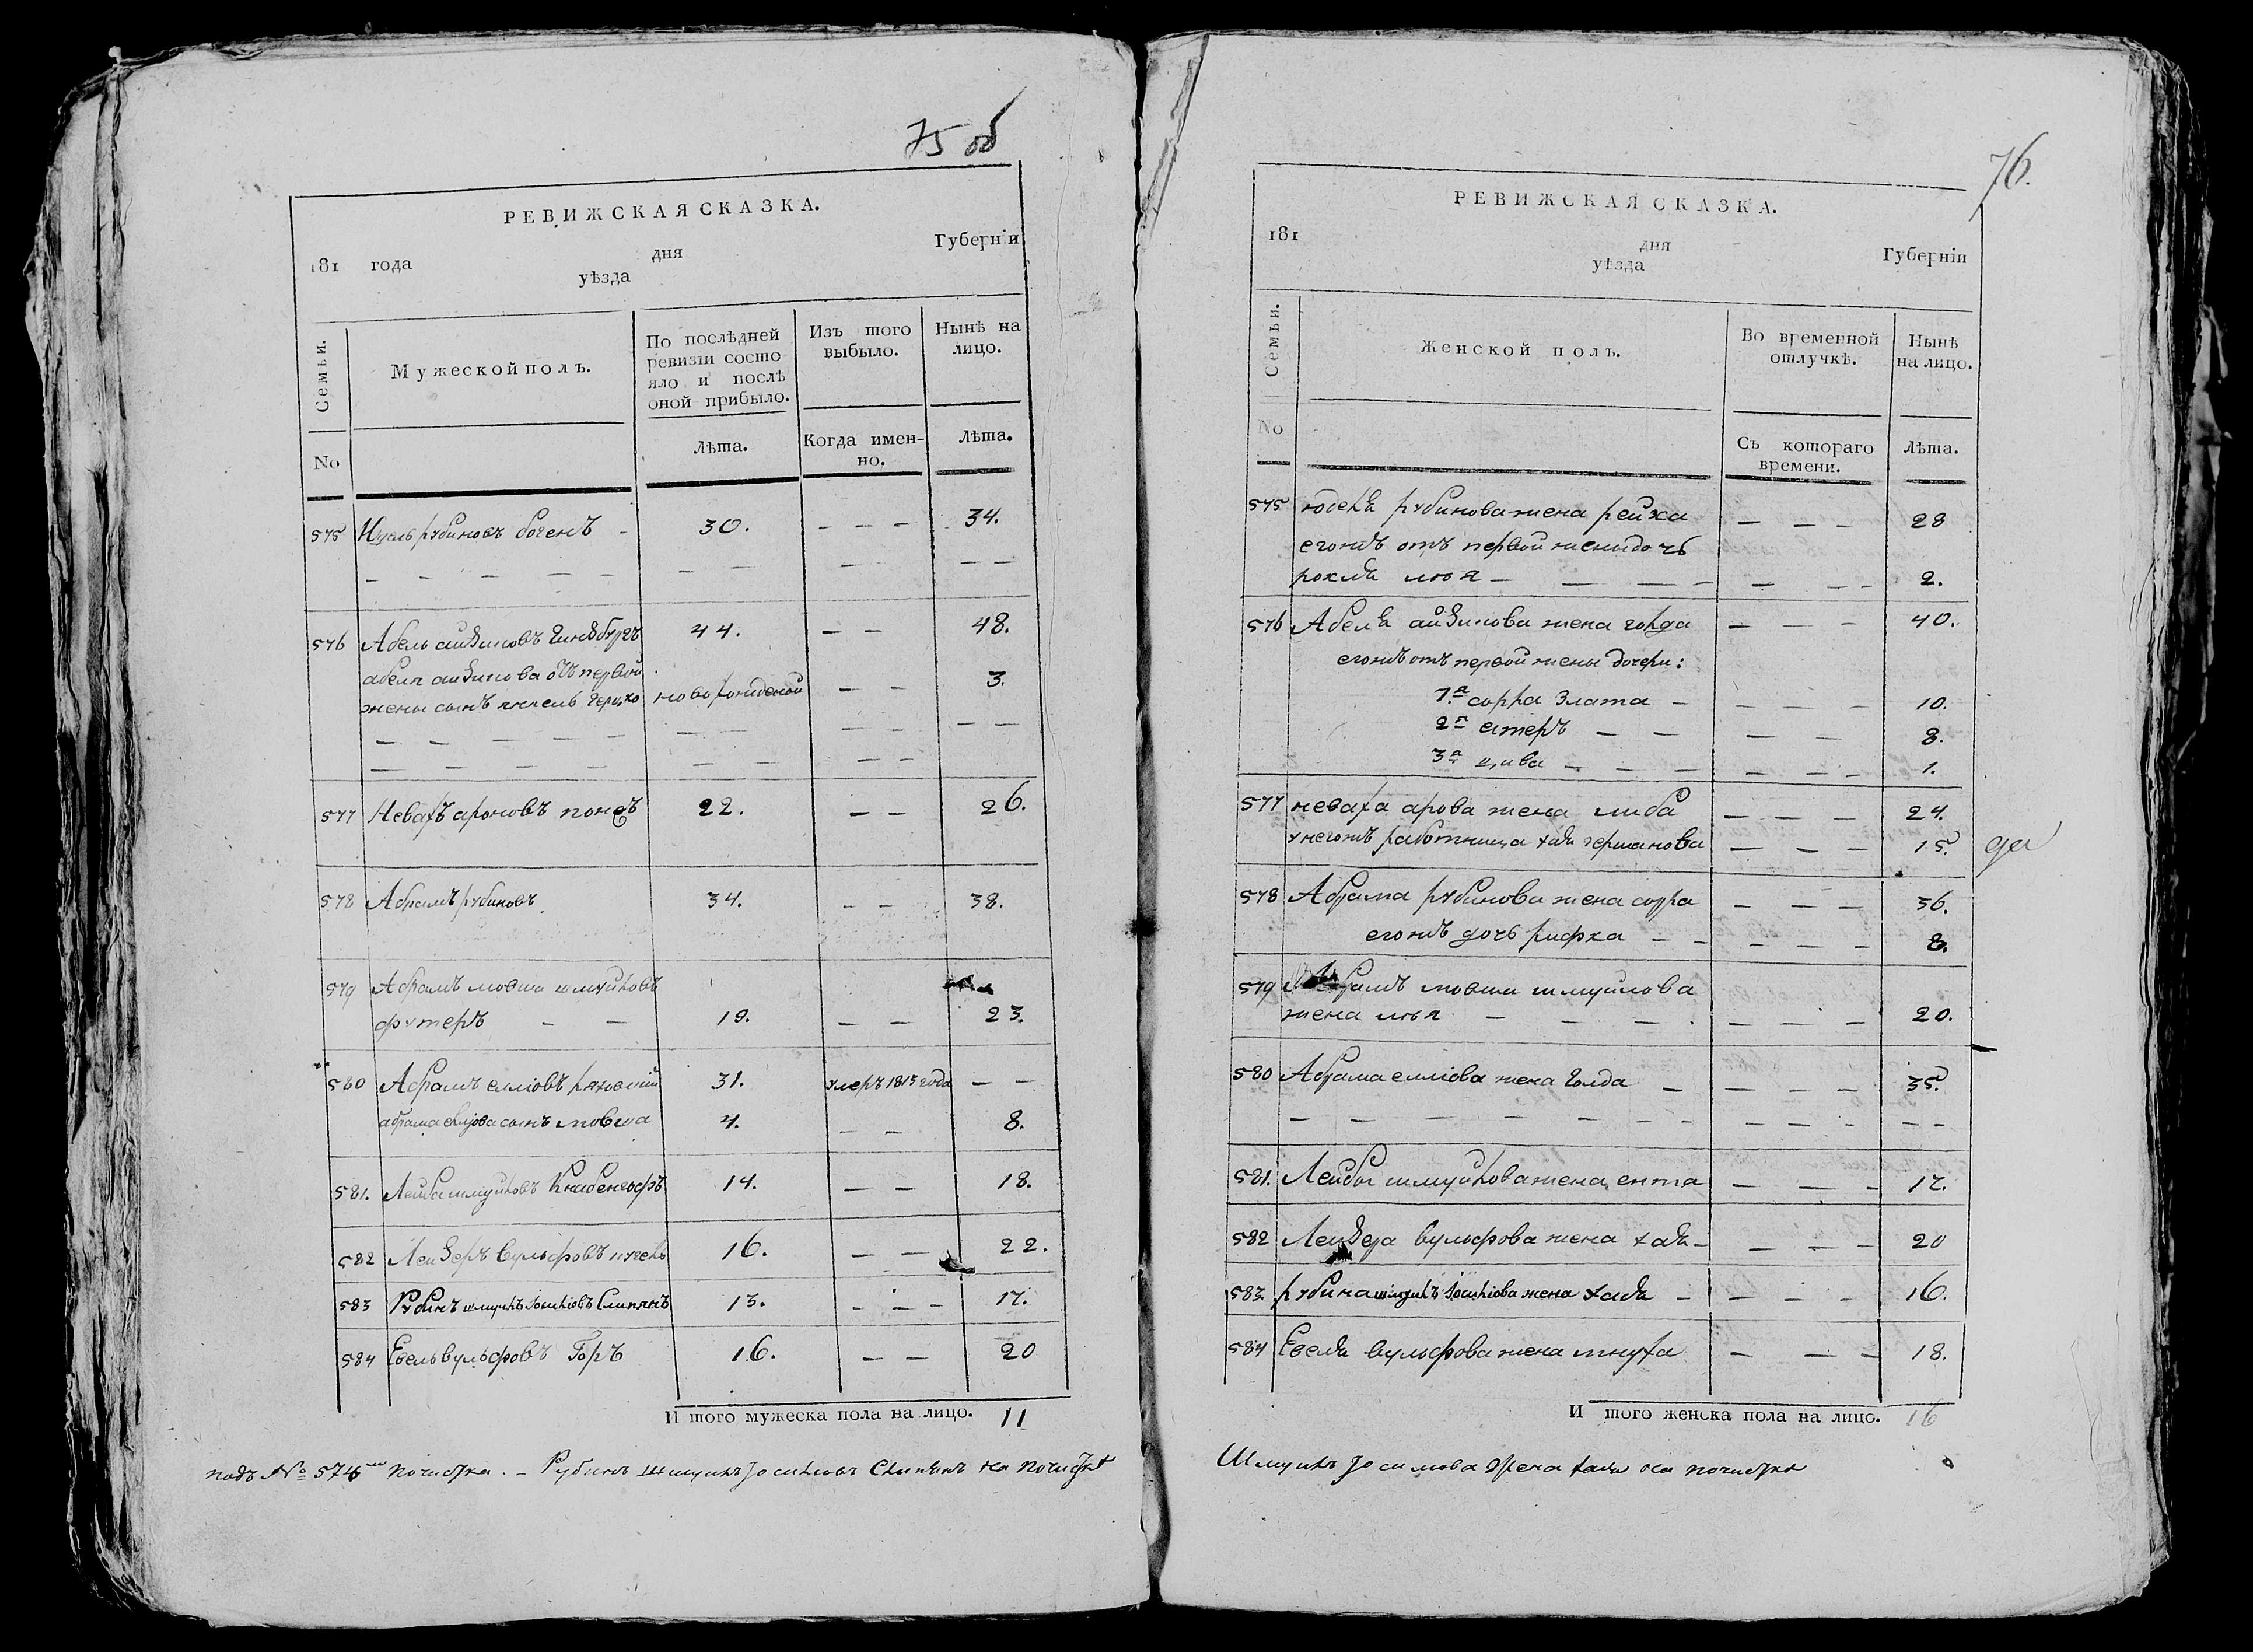 75 об
РЕВИЖСКАЯ СКАЗКА.
181 года дня Губерніи
уѣзда
Семьи. Мужеской полъ. По послѣдней ревизіи состояло и послѣ оной прибыло. Изъ того выбыло. Нынѣ на лицо.
No Лѣта. Когда именно. Лѣта.
575 Ицель рубиновъ богенъ - 30. - - - 34.
576 Абель айзиковъ Гинзбургъ 44. - - 48.
абеля айзикова отъ первой
жены сынъ новорожденой - - 3.
577 Невахъ ароновъ 22. - - 26.
578 Абрамъ рубиновъ 34. - - 38.
579 Абрамъ мовша шмуйловъ
футеръ - - 19. - - 23.
580 Абрамъ елліовъ 31. умеръ 1815 года - -
абрама еліова сынъ мовша 4. - - 8.
581. Лейба шмуйловъ 14. - - 18.
582 Лейзеръ вульфовъ 16. - - 22.
583 Рубинъ шмуилъ Іосиліовъ Слипянъ 13. - - - 17.
584 Евель вульфовъ Горъ 16. - - 20
И того мужеска пола на лицо. 11
подъ № 574 почистка. - Рубинъ Шмуилъ Іосиліовъ Слипянъ на почистке
76.
РЕВИЖСКАЯ СКАЗКА.
181 дня Губерніи
уѣзда
Семьи. Женской полъ. Во временной отлучкѣ. Нынѣ на лицо.
No Съ котораго времени. Лѣта.
575 рубинова жена рейза - - - 28
егожъ отъ первой жены дочь
рохля - - - 2.
576 Абеля айзикова жена голда - - - 40.
егожъ отъ первой жены дочери:
1.я сорра злата - - - - 10.
2я естеръ - - - - 8.
3я цива - - - - - - 1.
577 неваха арова жена либа - - - 24.
у негожъ работница хая германова - - - 15. да
578 Абрама рубинова жена сорра - - - 36.
егожъ дочь рифка - - - - - 8.
579 Абрамъ мовши шмуилова
жена - - - - - - 20.
580 Абрама елліова жена Голда - - - - - 35.
581. Лейбы шмуйлова жена ента - - - 17.
582 Лейзера вульфова жена хая - - - - 20
583 рубина шмуилъ Іосиліова жена хая - - - - 16.
584 Евеля вульфова жена мнуха - - - 18.
И того женска пола на лицо. 16
Шмуилъ Іосилова жена хая на почистке